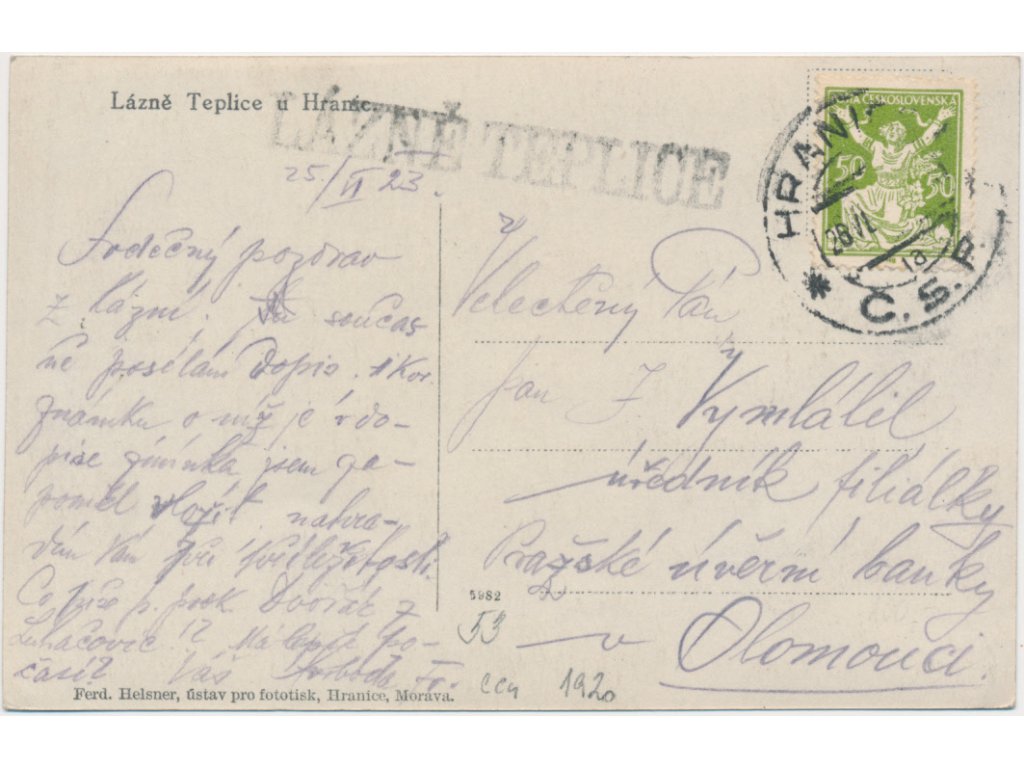 Lázně Teplice u Hranic.
LÁZNĚ TEPLICE
25/VI 23.
Srdečný pozdrav
z lázní. součas
ně posélám Dopis. 1 Kor.
známku o níž je v do-
pise zmínka, jsem za-
pomněl vložit. nahra-
dím Vám při příležitosti.
Co píše p. prok. Dvořák z
Luhačovic? Má lepší po-
časí? Váš Svoboda Fr.
Ferd. Helsner, ústav pro fototisk, Hranice, Morava.
ČESKOSLOVENSKÁ
50 50
HRANI
26 VI
1a
* Č.S.P. *
Velectěný Pán
pan J. Vymlátil
úředník filiálky
Pražské úvěrní banky
v Olomouci.
5982
53
1920